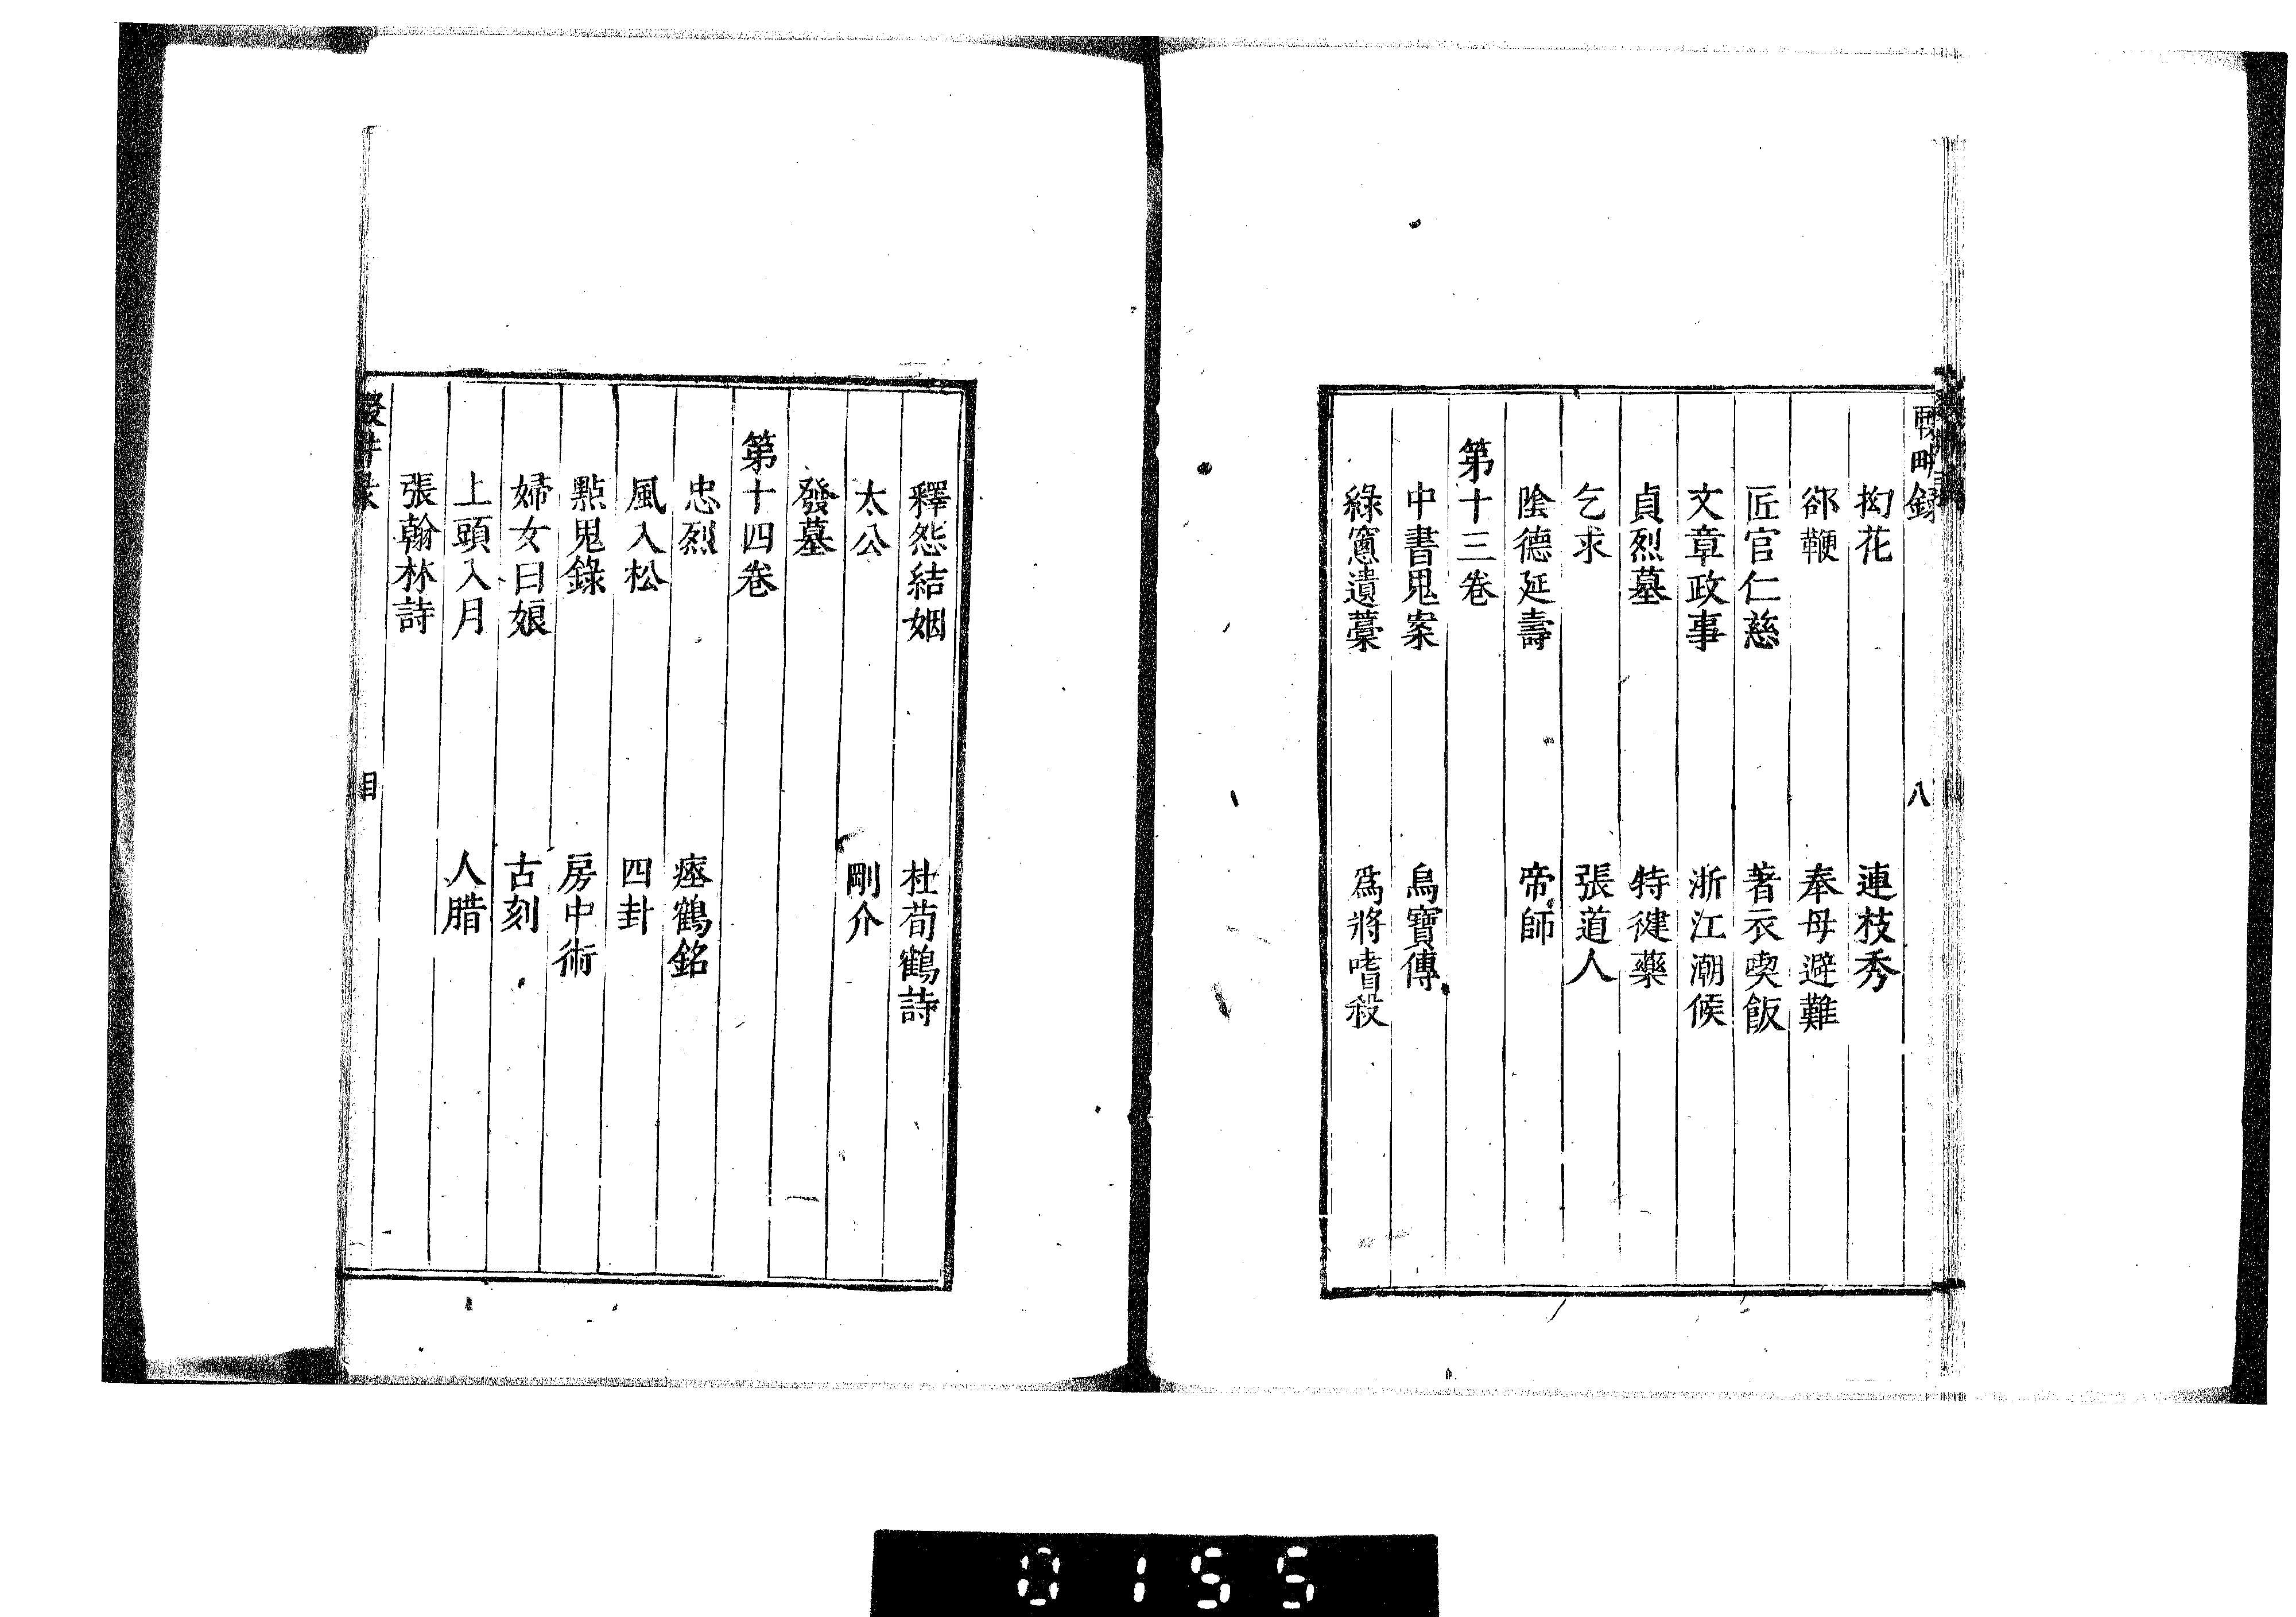 掏花　連枝秀
郤鞭　奉母避難
匠官仁慈　著衣喫飯
文章政事　浙江潮候
貞烈墓　特健藥
乞求　張道人
陰德延壽　帝師
第十三卷
中書鬼案　烏寶傳
綠窻遺藁　爲將嗜殺
釋怨結姻　杜荀鶴詩
太公　剛介
發墓
第十四卷
忠烈　瘞鶴銘
風入松　四卦
點鬼錄　房中術
婦女曰娘　古刻
上頭入月　人腊
張翰林詩
錄　八
目
0155